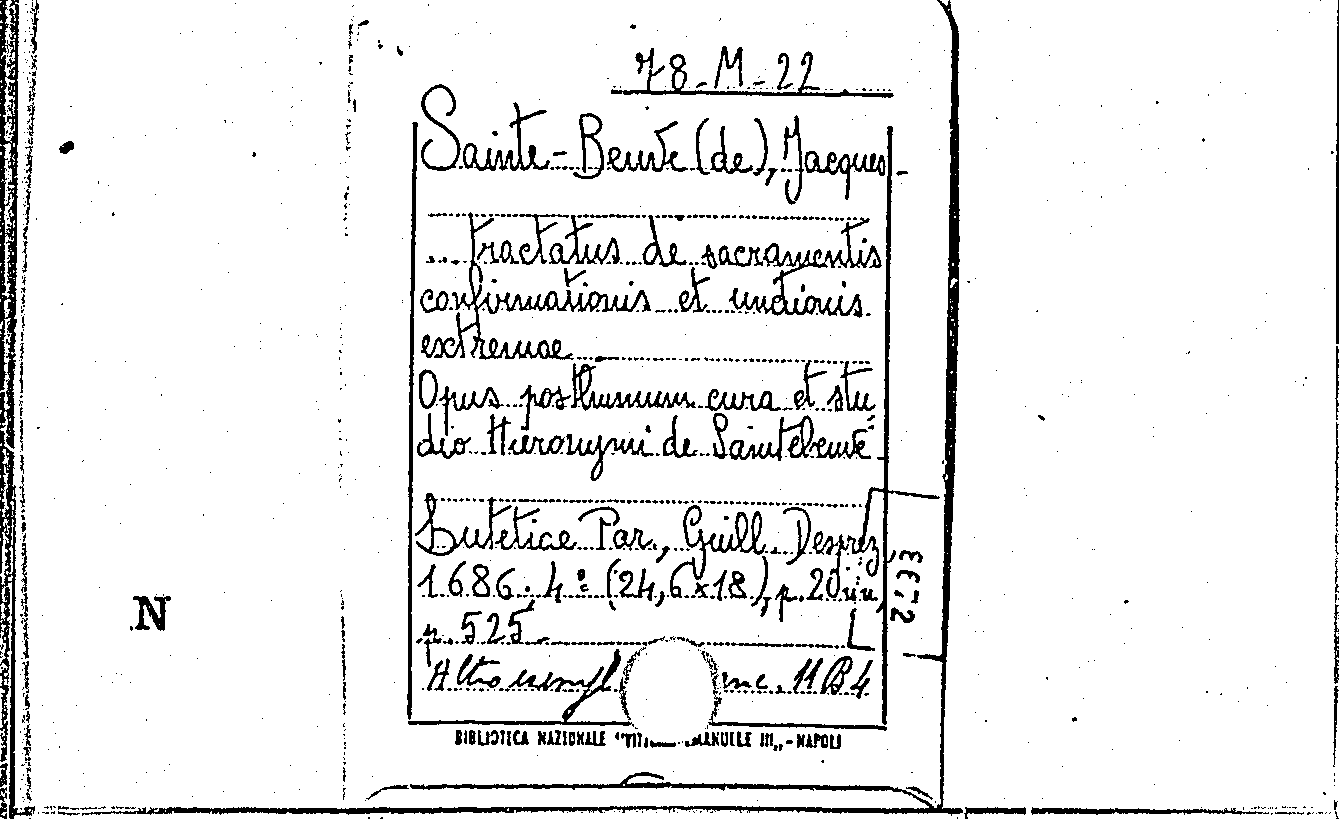 78-M-22
Sainte-Beuve (de), Jacques-
... tractatus de sacramentis
confirmationis et unctionis
extremae
Opus posthumum cura et stu=
dio Hieronymi de Saintebeuve-
Lutetiae Par., Guill. Desprez,
1686. 4º (24,6x18), p. 20
p. 525-
Altro esempl 11 B 4
BIBLIOTECA NAZIONALE "VITT MANUELE III„ - NAPOLI
N